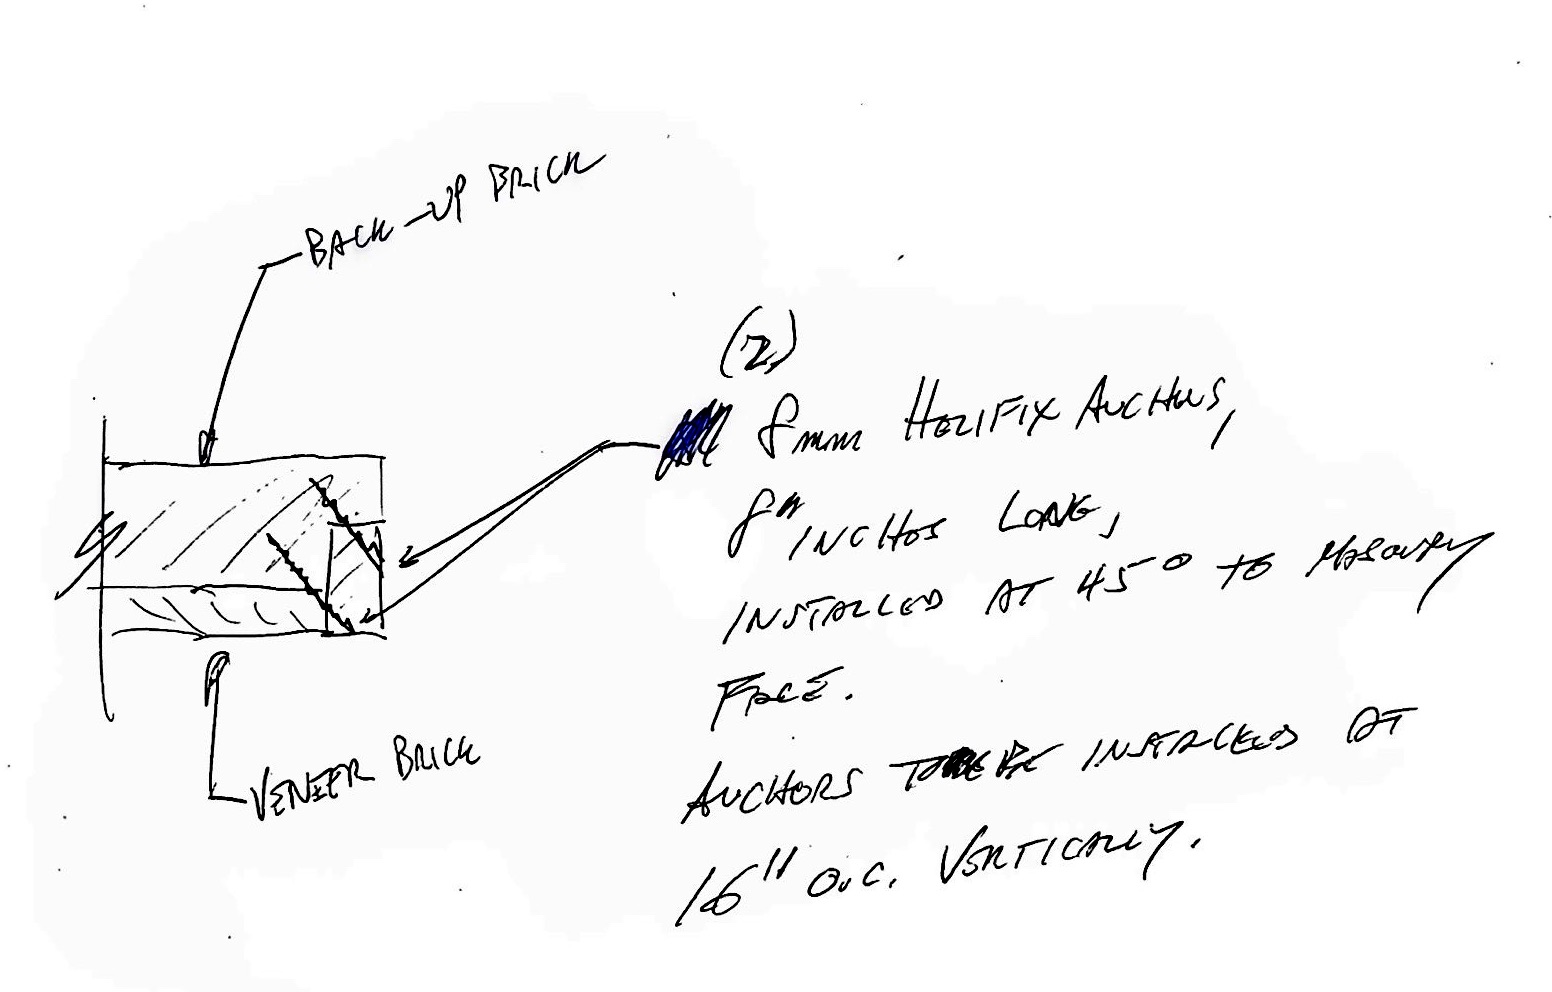 BACK-UP BRICK
(2)
8mm HELIFIX ANCHORS,
8" INCHES LONG,
INSTALLED AT 45° TO MASONRY
FACE.
ANCHORS TO BE INSTALLED AT
16" O.C. VERTICALLY.
VENEER BRICK